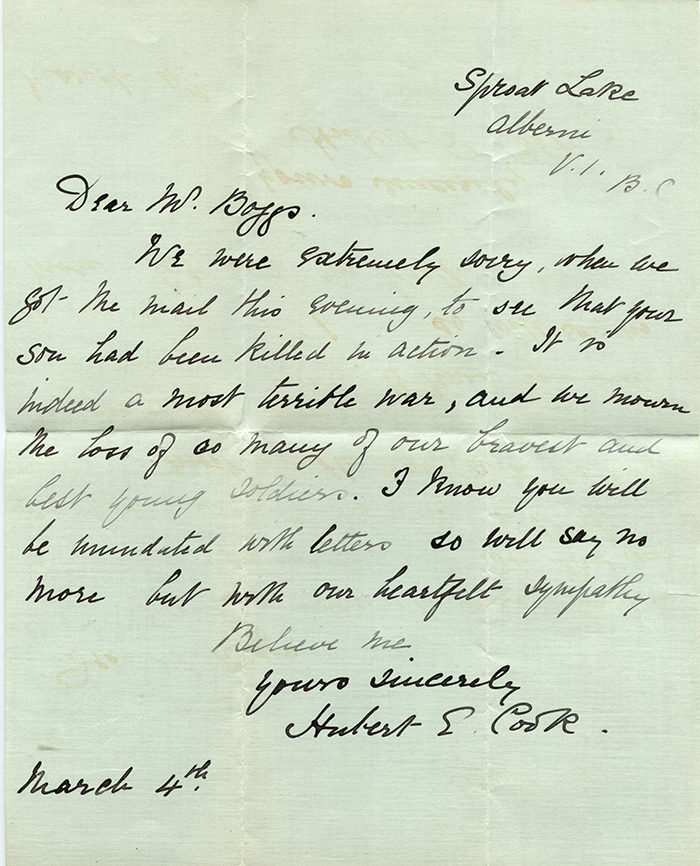 Sproat Lake
Alberni
V.I. B.C
Dear Mr. Boggs.
We were extremely sorry, when we
got the mail this evening, to see that your
son had been killed in action - It is
indeed a most terrible war, and we mourn
the loss of so many of our bravest and
best young soldiers. I know you will
be inundated with letters so will say no
more but with our heartfelt sympathy
Believe me
yours sincerely
Hubert E. Cook.
March 4th.